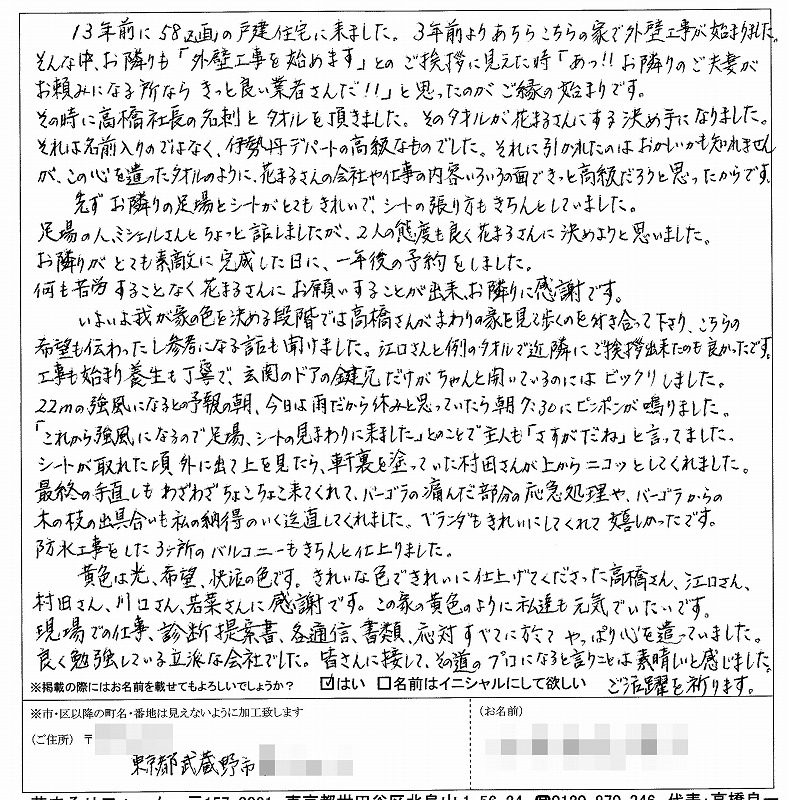 13年前に58区画の戸建住宅に来ました。3年前よりあちらこちらの家で外壁工事が始まりました。
そんな中、お隣りも「外壁工事を始めます」とのご挨拶に見えた時「あっ!!お隣りのご夫妻が
お頼みになる所ならきっと良い業者さんだ!!」と思ったのがご縁の始まりです。
その時に高橋社長の名刺とタオルを頂きました。そのタオルが花まるさんにする決め手になりました。
それは名前入りのではなく、伊勢丹デパートの高級なものでした。それに引かれたのはおかしいかも知れません
が、この心を遣ったタオルのように、花まるさんの会社や仕事の内容いろいろの面できっと高級だろうと思ったからです。
先ずお隣りの足場とシートがとてもきれいで、シートの張り方もきちんとしていました。
足場の人、ミシェルさんとちょっと話しましたが、2人の態度も良く花まるさんに決めようと思いました。
お隣りがとても素敵に完成した日に、一年後の予約をしました。
何も苦労することなく花まるさんにお願いすることが出来、お隣りに感謝です。
いよいよ我が家の色を決める段階では高橋さんがまわりの家を見て歩くのを付き合って下さり、こちらの
希望も伝わったし参考になる話も聞けました。江口さんと例のタオルで近隣にご挨拶出来たのも良かったです。
工事も始まり養生も丁寧で、玄関のドアの鍵元だけがちゃんと開いているのにはビックリしました。
22mの強風になるとの予報の朝、今日は雨だから休みと思っていたら朝7:30にピンポンが鳴りました。
「これから強風になるので足場、シートの見まわりに来ました」とのことで主人も「さすがだね」と言ってました。
シートが取れた頃外に出て上を見たら、軒裏を塗っていた村田さんが上からニコッとしてくれました。
最終の手直しもわざわざちょこちょこ来てくれて、パーゴラの痛んだ部分の応急処理や、パーゴラからの
木の枝の出具合いも私の納得のいく迄直してくれました。ベランダもきれいにしてくれて嬉しかったです。
防水工事をした3ヶ所のバルコニーもきちんと仕上りました。
黄色は光、希望、快活の色です。きれいな色できれいに仕上げてくださった高橋さん、江口さん、
村田さん、川口さん、若葉さんに感謝です。この家の黄色のように私達も元気でいたいです。
現場での仕事、診断提案書、各通信、書類、応対すべてに於てやっぱり心を遣っていました。
良く勉強している立派な会社でした。皆さんに接して、その道のプロになると言うことは素晴しいと感じました。
ご活躍を祈ります。
※掲載の際にはお名前を載せてもよろしいでしょうか? ☑はい □名前はイニシャルにして欲しい
※市・区以降の町名・番地は見えないように加工致します
(ご住所)〒
東京都武蔵野市
(お名前)